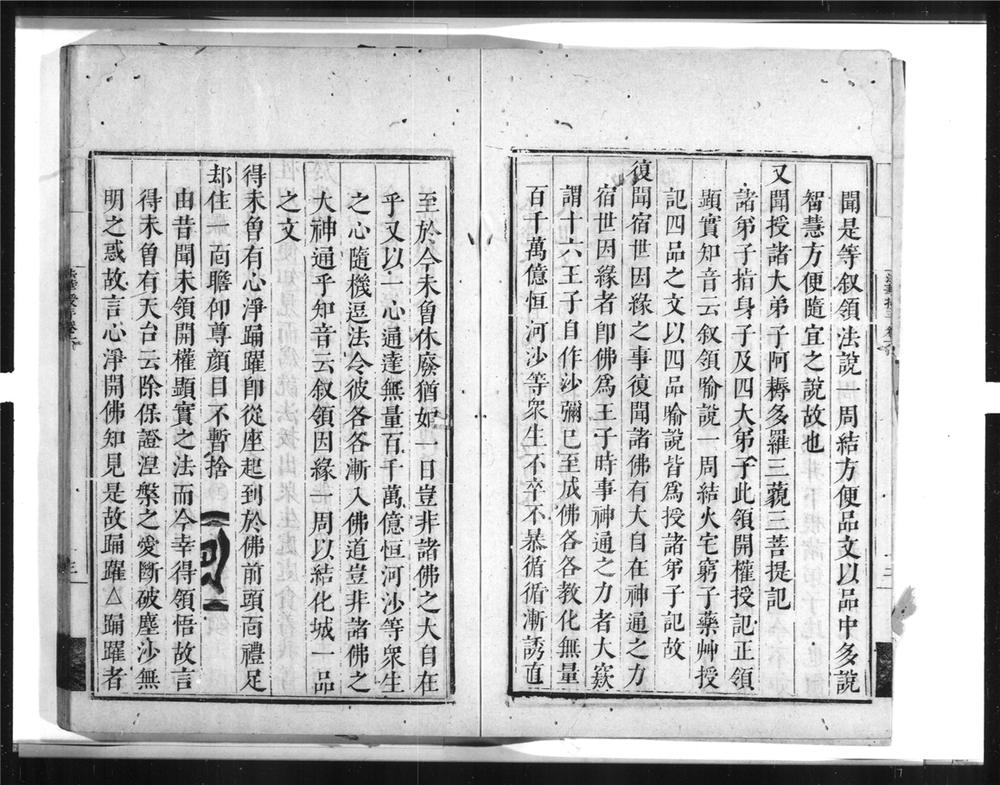 聞是等叙領法說一周結方便品文以品中多說
智慧方便隨宜之說故也
又聞授諸大弟子阿耨多羅三藐三菩提記
諸弟子指身子及四大弟子此領開權授記正領
顯實知音云叙領喻說一周結火宅窮子藥艸授
記四品之文以四品喻說皆爲授諸弟子記故
復聞宿世因緣之事復聞諸佛有大自在神通之力
宿世因緣者卽佛爲王子時事神通之力者大欵
謂十六王子自作沙彌巳至成佛各各教化無量
百千萬億恒河沙等衆生不卒不暴循循漸誘直
至於今未曾休廢猶如一日豈非諸佛之大自在
乎又以一心通達無量百千萬億恒河沙等衆生
之心隨機逗法令彼各各漸入佛道豈非諸佛之
大神通乎知音云叙領因緣一周以結化城一品
之文
得未曾有心淨踊躍卽從座起到於佛前頭靣禮足
却住一靣瞻仰尊顏目不暫捨
由昔聞未領開權顯實之法而今幸得領悟故言
得未曾有天台云除保證涅槃之愛斷破塵沙無
明之惑故言心淨開佛知見是故踊躍△踊躍者